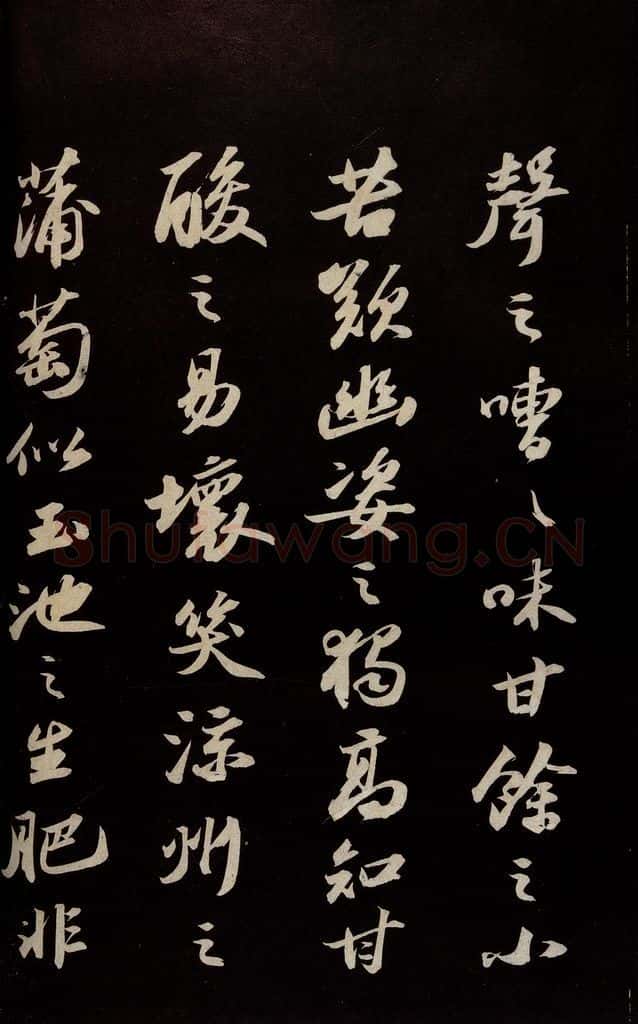 聲之嘈〻味甘餘之小
苦歎幽姿之獨高知甘
酸之易壞笑涼州之
蒲萄似玉池之生肥非
Shufawang.CN